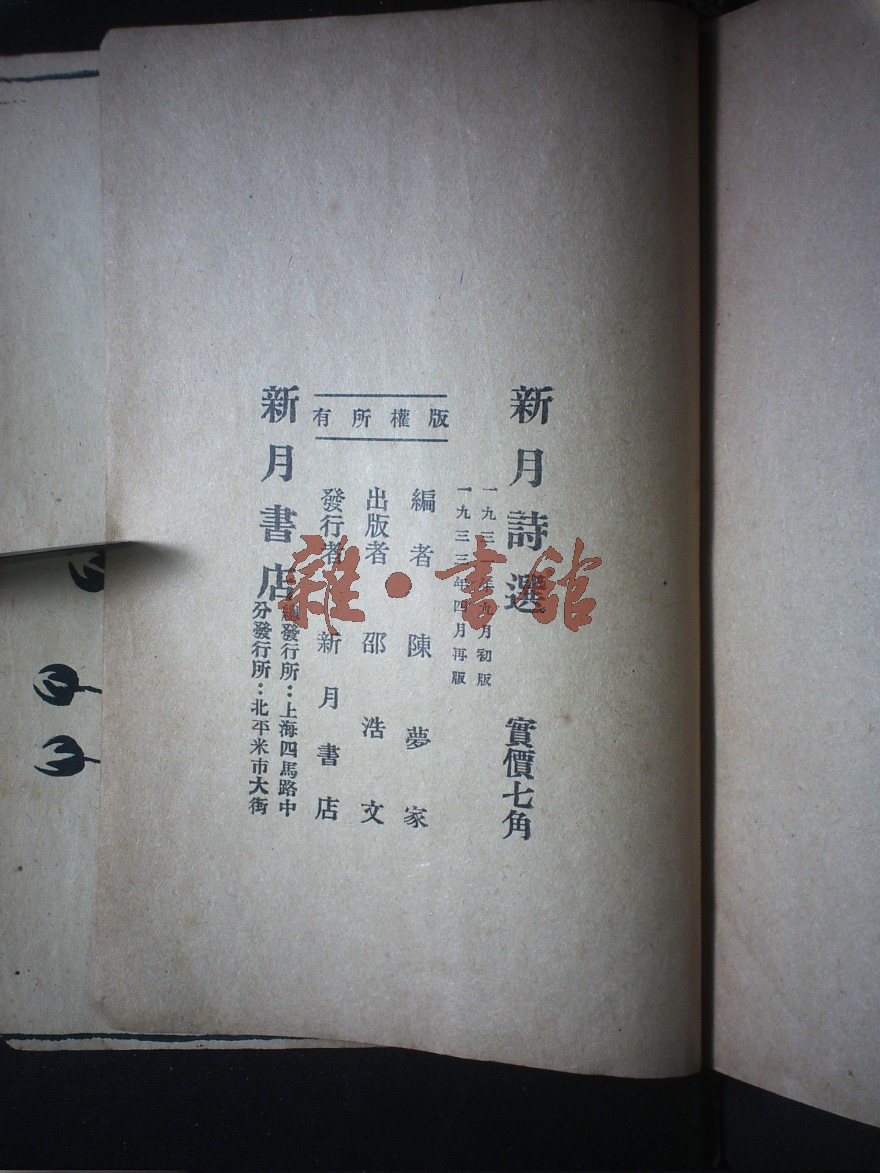 新月詩選 實價七角
一九三一年九月初版
一九三三年四月再版
版權所有
編者 陳夢家
出版者 邵浩文
發行者 新月書店
新月書店
總發行所：上海四馬路中
分發行所：北平米市大街
雜·書館